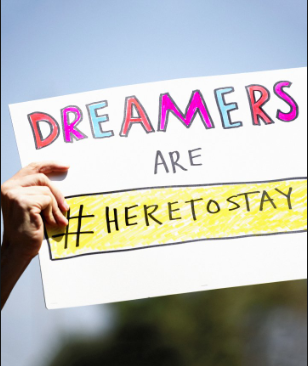 DREAMERS
ARE
#HERETOSTAY